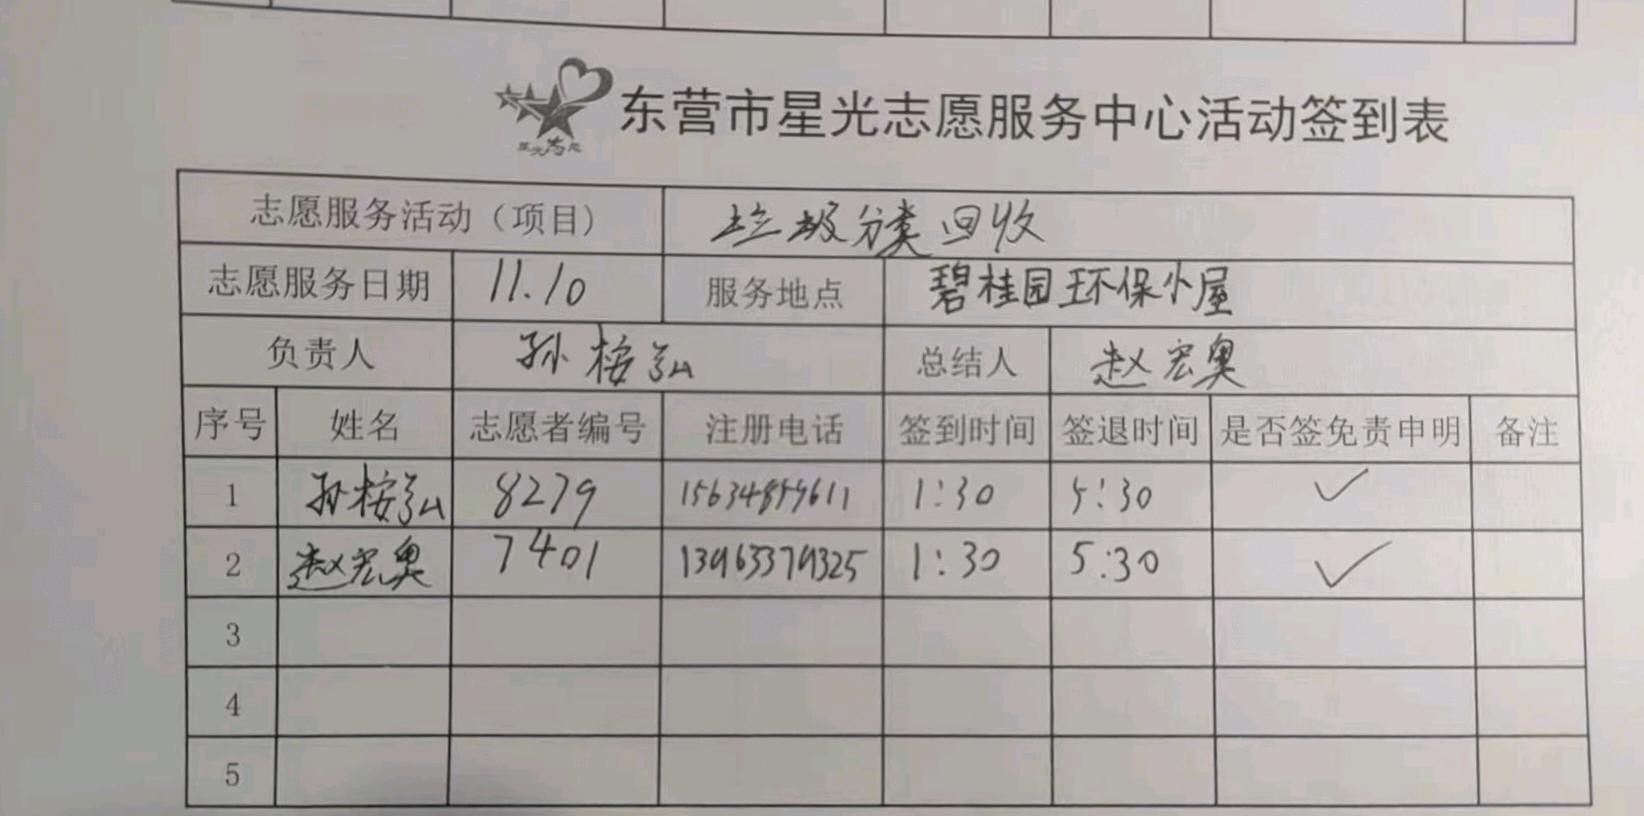 东营市星光志愿服务中心活动签到表
志愿服务活动（项目） 垃圾分类回收
志愿服务日期 11.10 服务地点 碧桂园环保小屋
负责人 孙桉弘 总结人 赵宏奥
序号 姓名 志愿者编号 注册电话 签到时间 签退时间 是否签免责申明 备注
1 孙桉弘 8279 1:30 5:30 ✓
2 赵宏奥 7401 13963379325 1:30 5:30 ✓
3
4
5